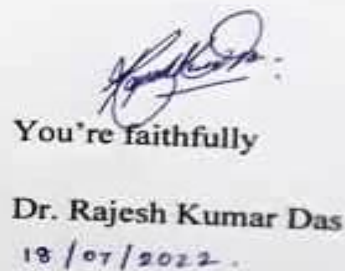 You're faithfully
Dr. Rajesh Kumar Das
18/07/2022.